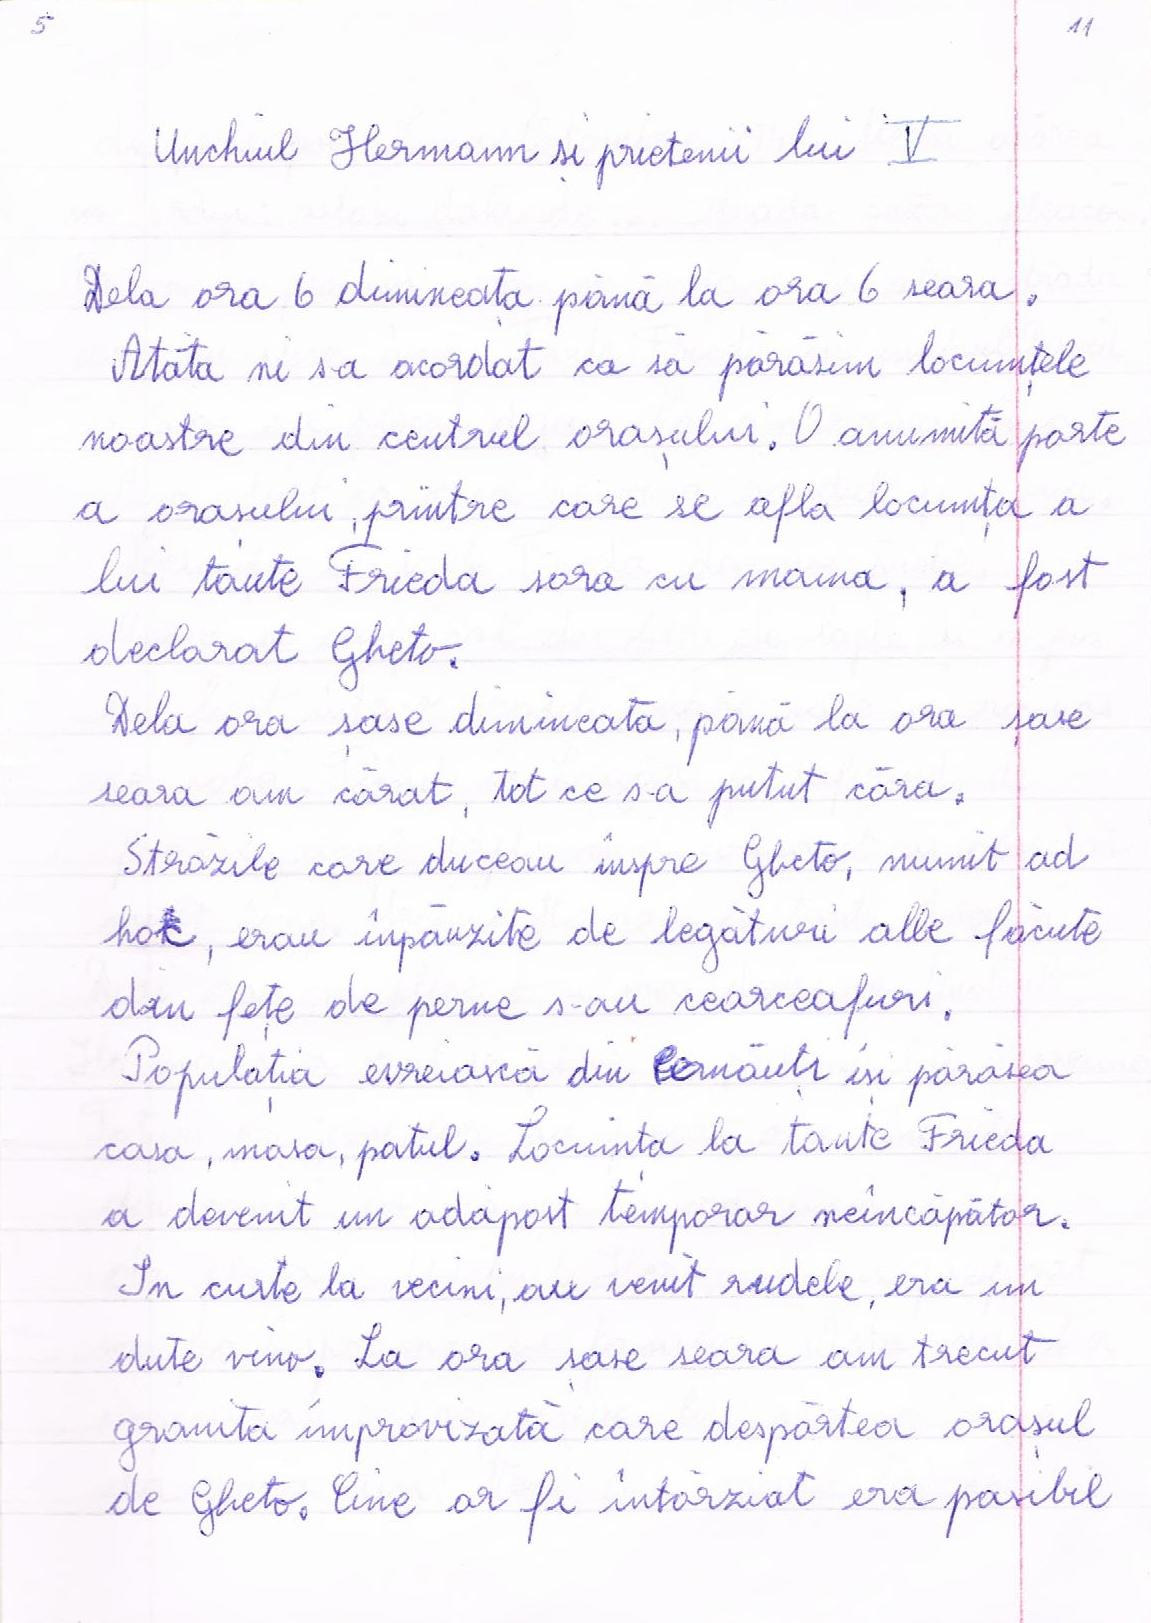 5 11
Unchiul Hermann și prietenii lui V
Dela ora 6 dimineața până la ora 6 seara.
Atâta ni s-a acordat ca să părăsim locuințele
noastre din centrul orașului. O anumită parte
a orașului, printre care se afla locuința a
lui tante Frieda sora cu mama, a fost
declarat Gheto.
Dela ora șase dimineată, până la ora șase
seara am cărat, tot ce s-a putut căra.
Străzile care duceau înspre Gheto, numit ad
hoc, erau înpânzite de legături albe făcute
din fețe de perne s-au cearceafuri.
Populația evreiască din Cernăuți iși părăsea
casa, masa, patul. Locuința la tante Frieda
a devenit un adăpost temporar neîncăpător.
In curte la vecini, au venit rudele, era un
dute vino. La ora șase seara am trecut
granita improvizată care despărtea orașul
de Gheto. Cine ar fi întârziat era pasibil